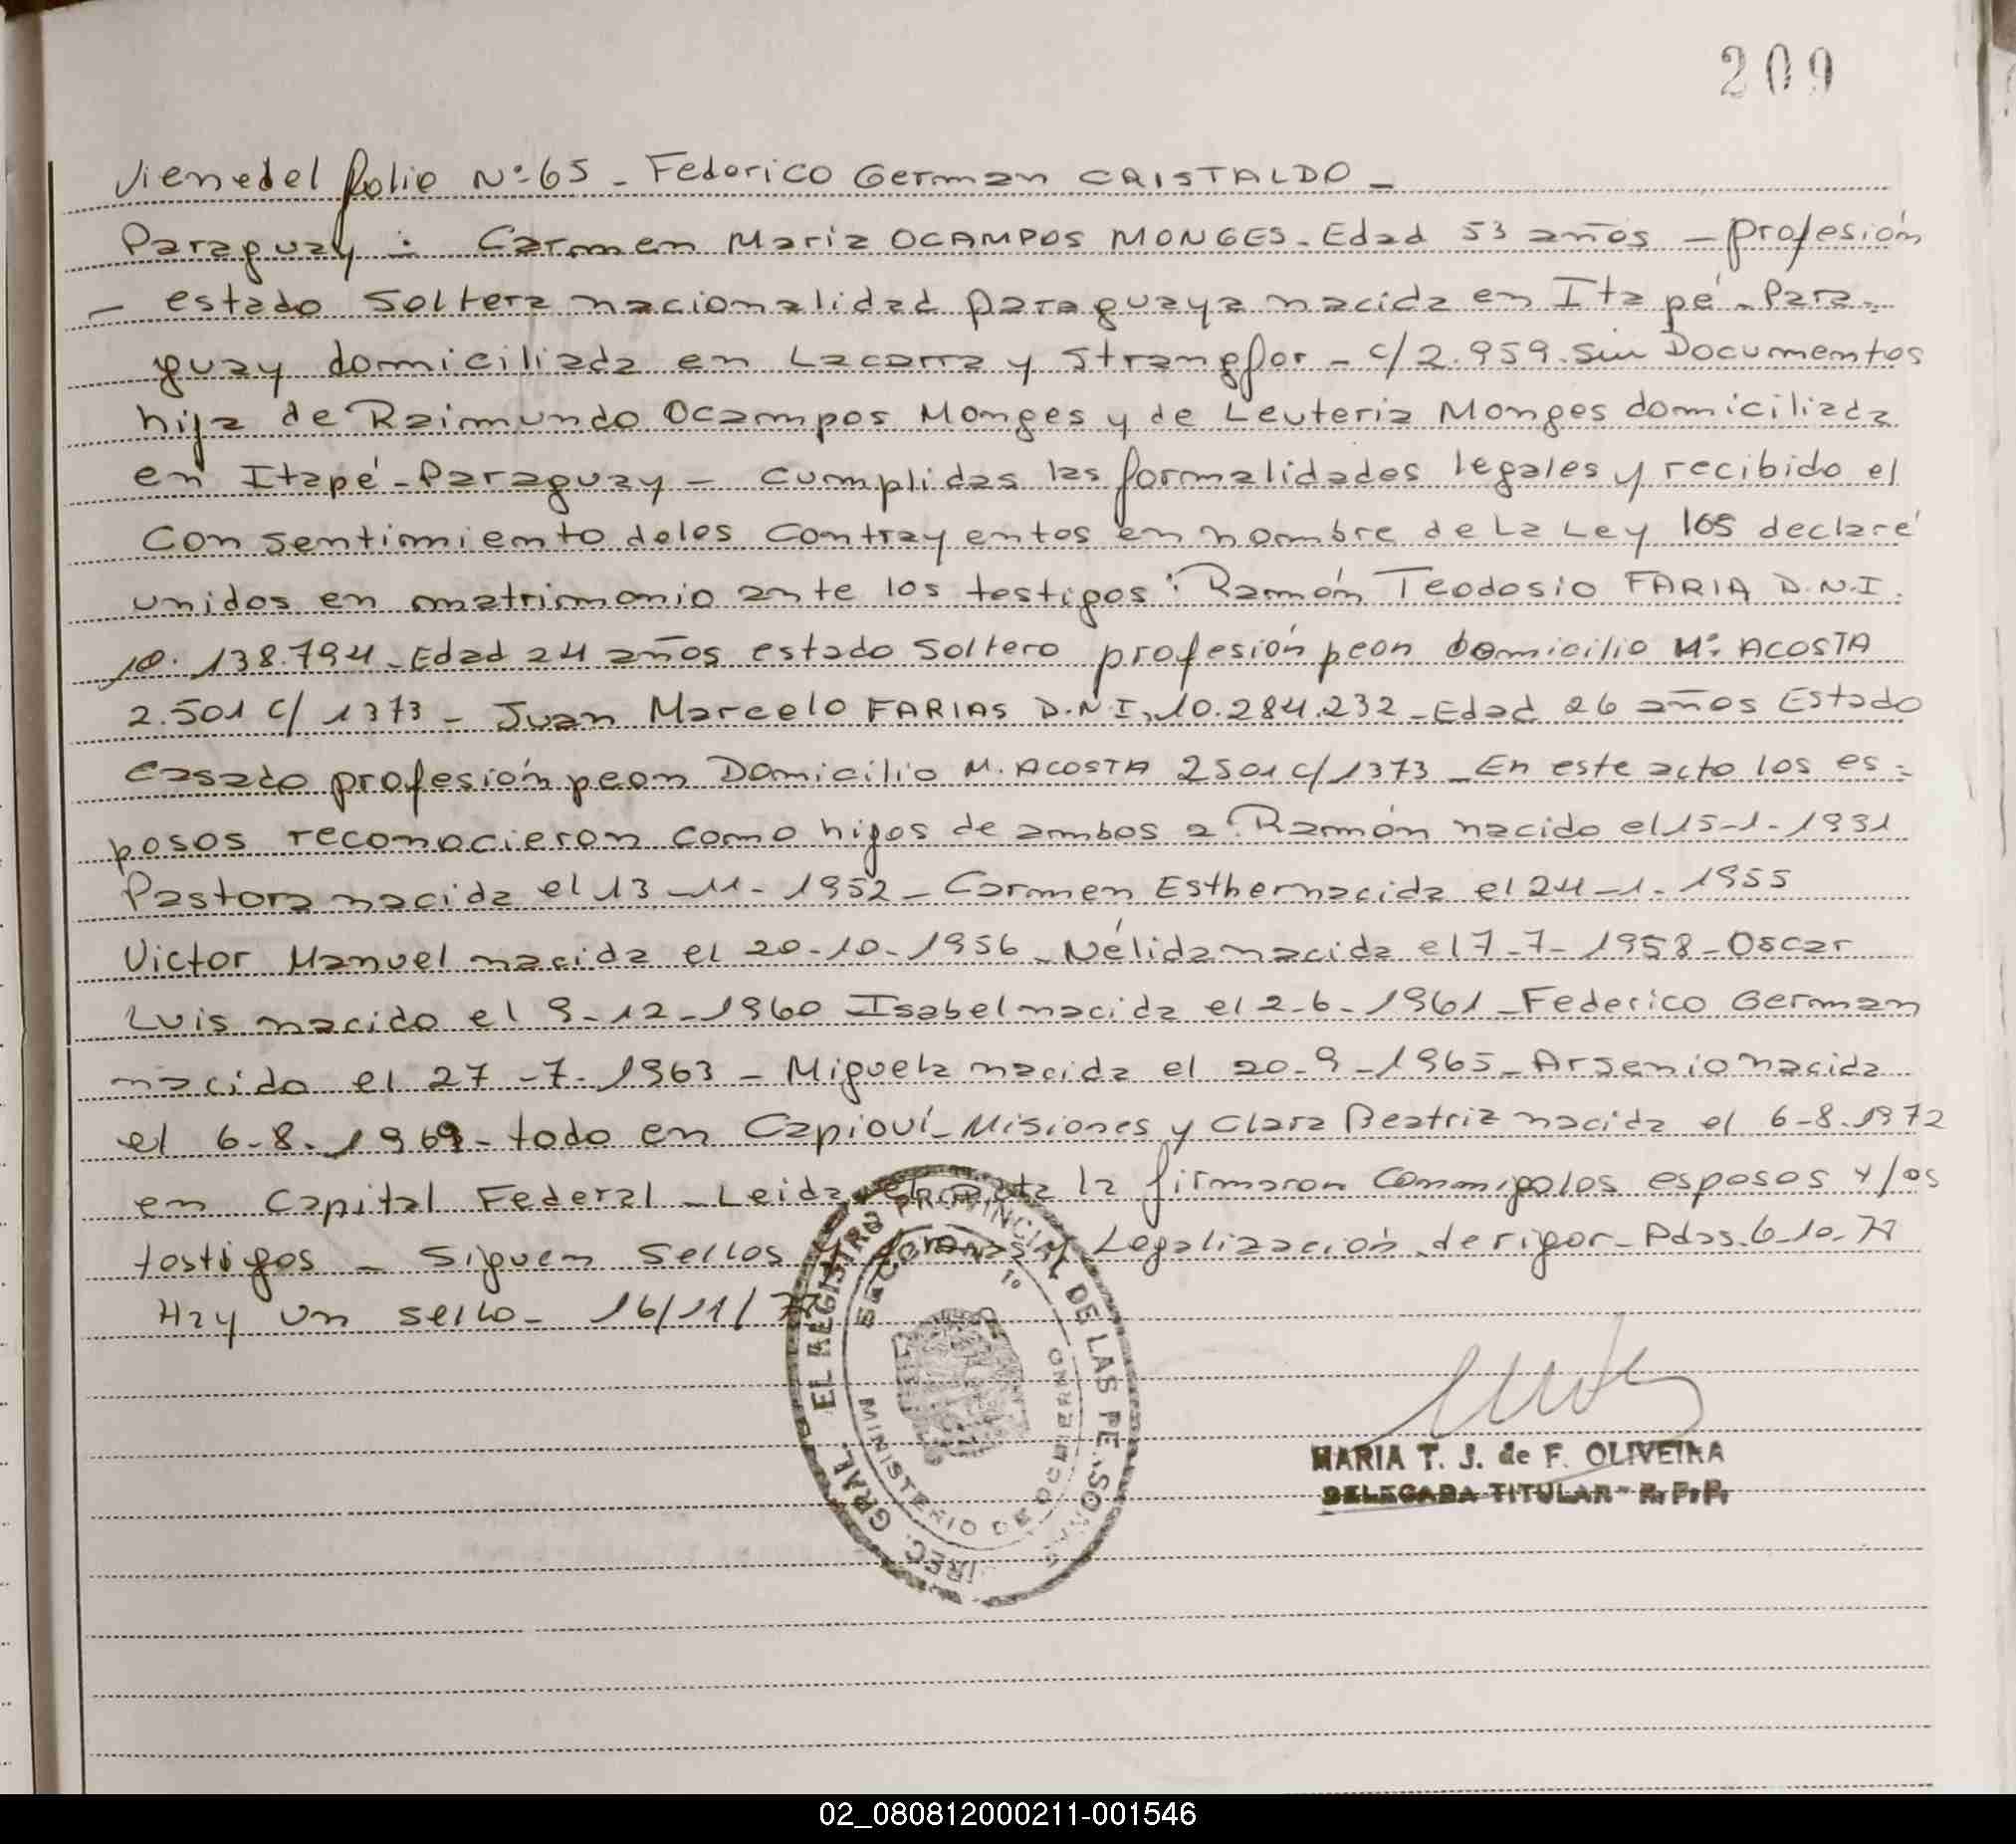 209
Viene del folio Nº 65 - Federico German CRISTALDO -
Paraguay : Carmen Maria OCAMPOS MONGES - Edad 53 años - profesión
- estado Soltera nacionalidad paraguaya nacida en Itapé - Para-
guay domiciliada en Lacarra y Strangfor - c/ 2.959. Sin Documentos
hija de Raimundo Ocampos Monges y de Leuteria Monges domiciliada
en Itapé - Paraguay - cumplidas las formalidades legales y recibido el
Consentimiento de los Contrayentes en nombre de La Ley los declaré
unidos en matrimonio ante los testigos : Ramón Teodosio FARIA D.N.I.
10.138.794 - Edad 24 años estado Soltero profesión peon Domicilio Mº ACOSTA
2.501 c/ 1373 - Juan Marcelo FARIAS D.N.I. 10.284.232 - Edad 26 años Estado
Casado profesión peon Domicilio M. ACOSTA 2501 c/ 1373 - En este acto los es-
posos reconocieron como hijos de ambos a : Ramón nacido el 15-1-1931
Pastora nacida el 13-11-1952 - Carmen Esther nacida el 24-1-1955
Victor Manuel nacida el 20-10-1956 - Nélida nacida el 7-7-1958 - Oscar
Luis nacido el 9-12-1960 Isabel nacida el 2-6-1961 - Federico German
nacido el 27-7-1963 - Miguela nacida el 20-9-1965 - Arsenio nacida
el 6-8-1969 - todo en Capioví - Misiones y Clara Beatriz nacida el 6-8-1972
en Capital Federal - Leida el acta la firmaron Conmigo los esposos y los
testigos - Siguen Sellos y firmas y Legalización de rigor - Pdas. 6-10-77
Hay un sello - 16/11/77
DIREC. GRAL. EL REGISTRO PROVINCIAL DE LAS PERSONAS
MINISTERIO DE GOBIERNO
MARIA T. J. de F. OLIVEIRA
DELEGADA TITULAR - R. P. P.
02_080812000211-001546